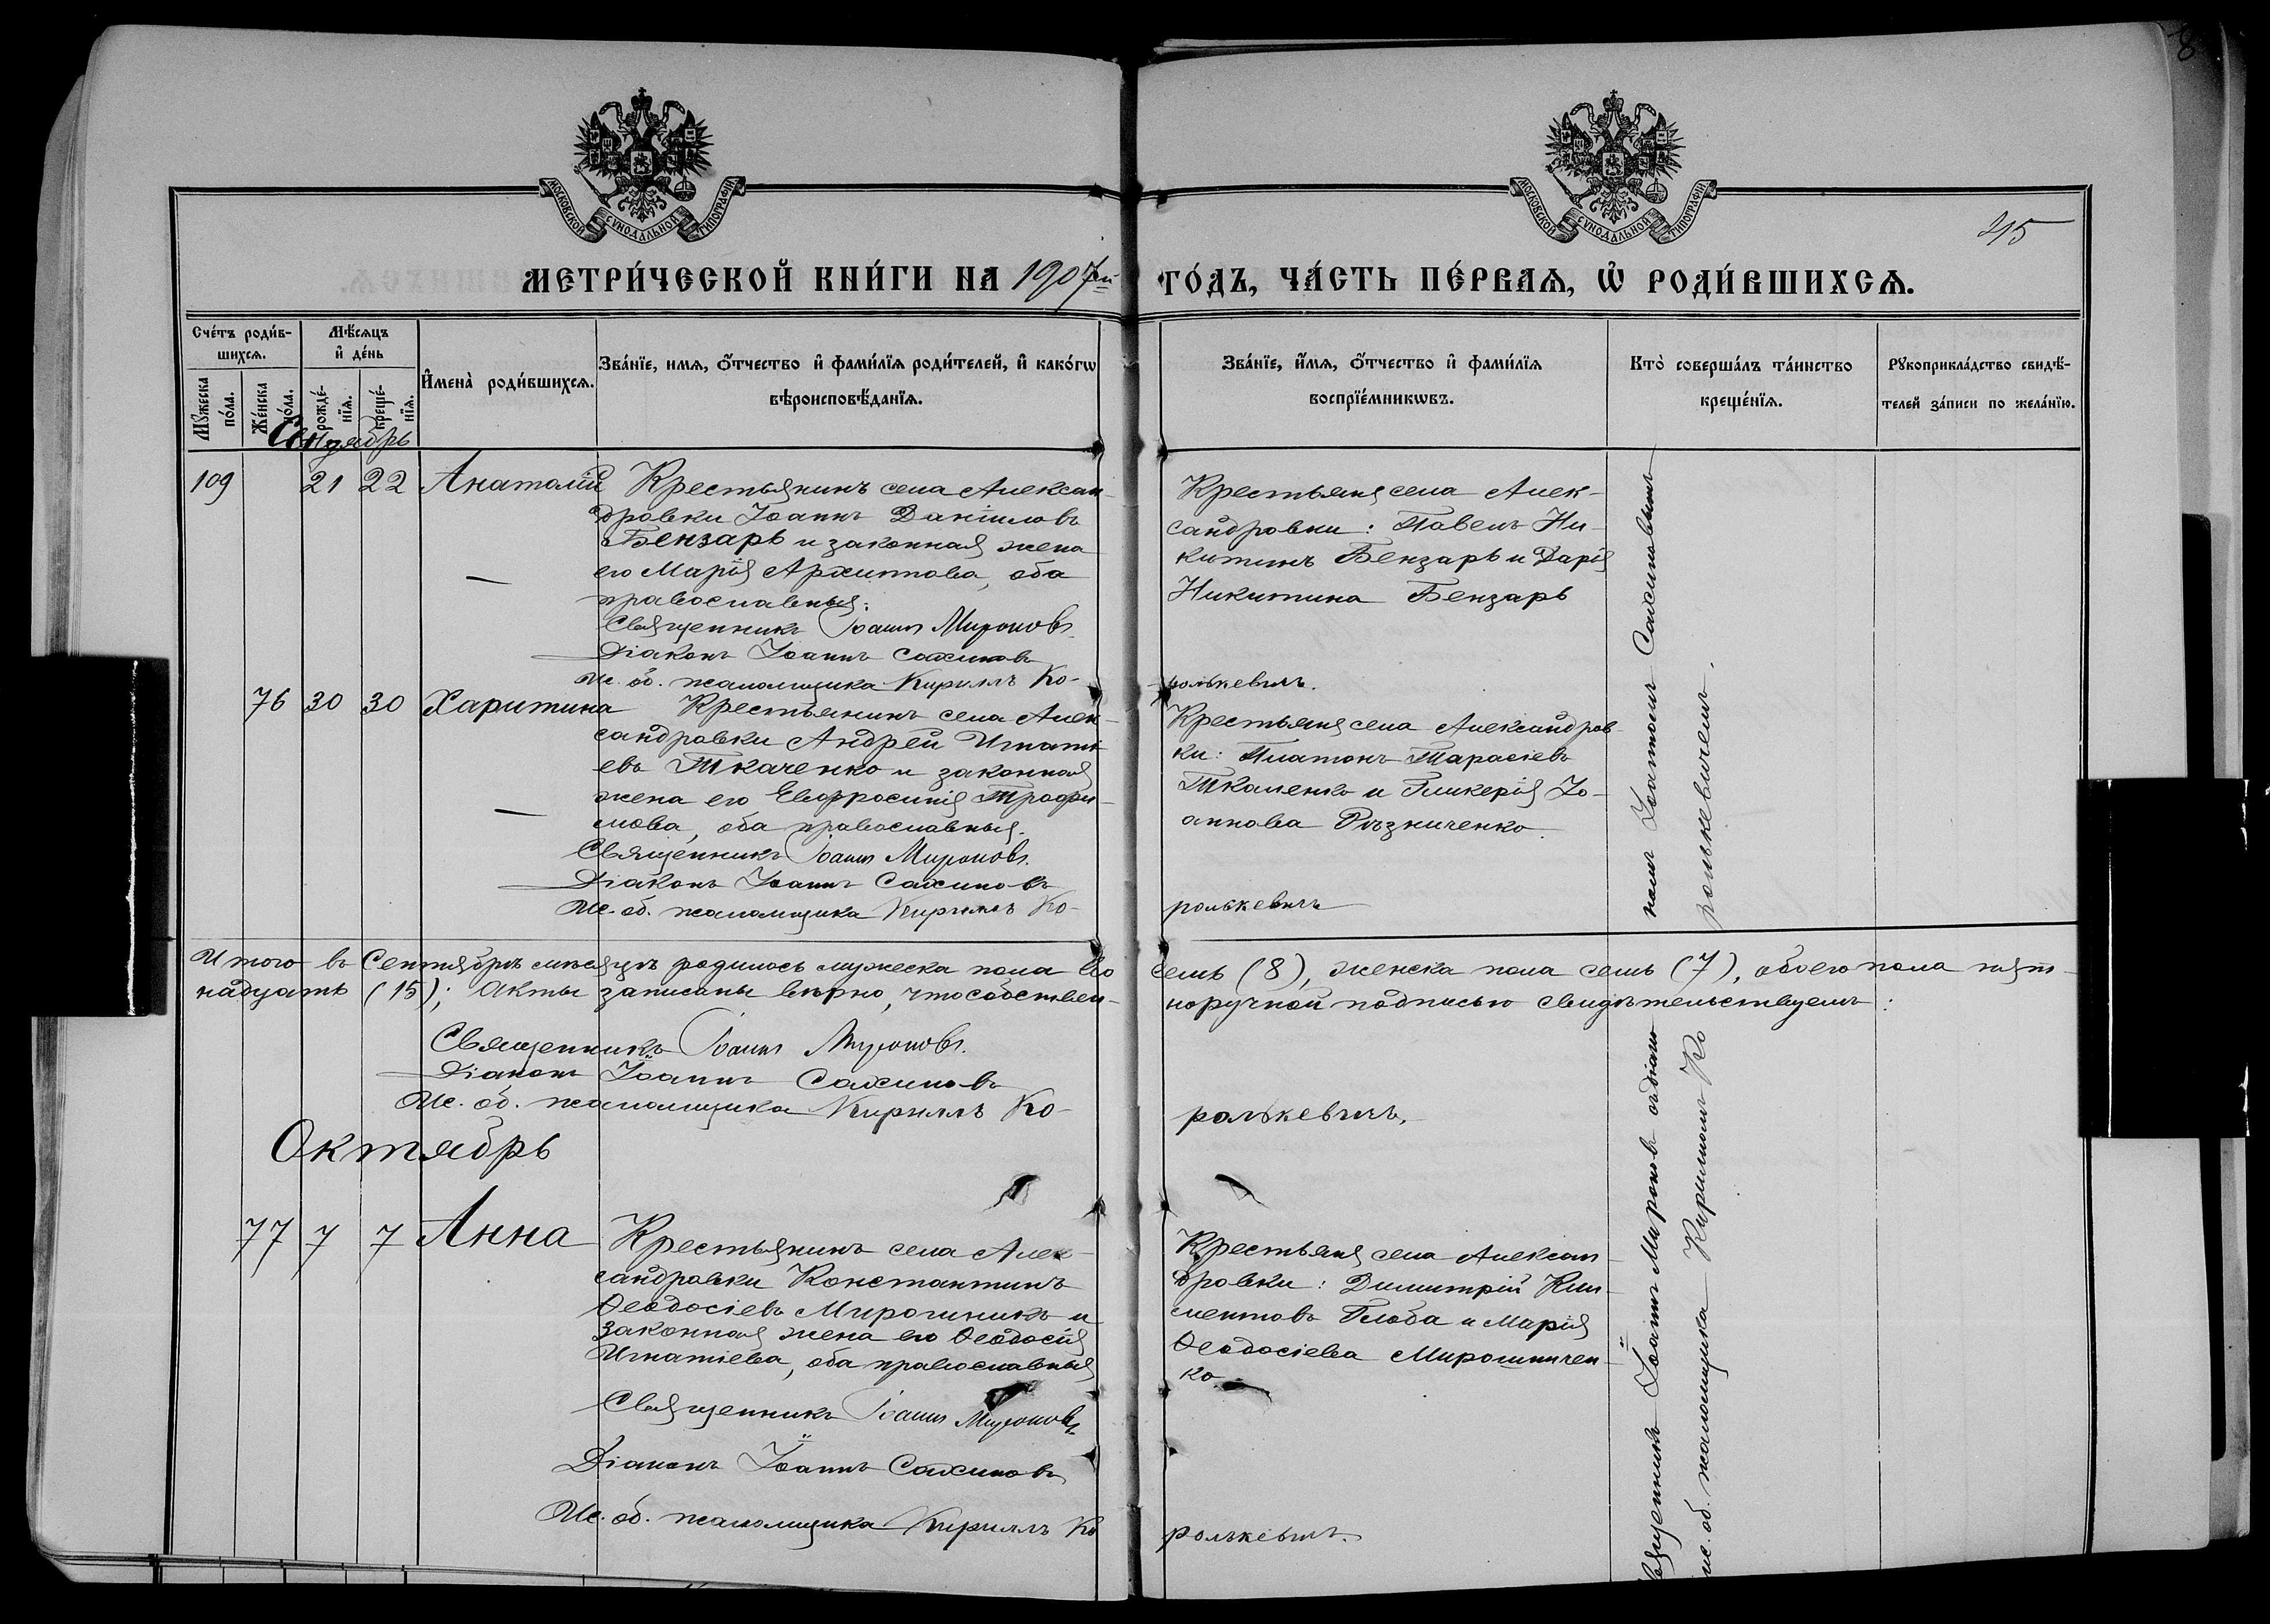 МОСКОВСКОЙ СѴНОДАЛЬНОЙ ТИПОГРАФІИ
МОСКОВСКОЙ СѴНОДАЛЬНОЙ ТИПОГРАФІИ
415
МЕТРИ́ЧЕСКОЙ КНИ́ГИ НА 1907й
ГО́ДЪ, ЧА́СТЬ ПЕ́РВАѦ, Ѽ РОДИ́ВШИХСѦ.
Сче́тъ роди́в-
шихсѧ.
Мꙋ́жеска по́ла.
Же́нска по́ла.
Мѣ́сѧцъ
и҆ де́нь
рожде́-
нїѧ.
креще́-
нїѧ.
И҆мена̀ роди́вшихсѧ.
Зва́нїе, имѧ, ѻ҆́тчество и҆ фами́лїѧ роди́телей, и҆ како́гѡ
вѣроисповѣ́данїѧ.
Зва́нїе, и҆́мѧ, ѻ҆́тчество и҆ фами́лїѧ
воспрїе́мникѡвъ.
Кто̀ соверша́лъ та́инство
креще́нїѧ.
Рꙋкоприкла́дство свидѣ́-
телей за́писи по жела́нїю.
Сентябрь
109 21 22 Анатолій Крестьянинъ села Алексан-
дровки Іоаннъ Даніиловъ
Бензарь и законная жена
его Марія Архипова, оба
православныя.
Священникъ Іоаннъ Мироновъ.
Діаконъ Іоаннъ Сахиновъ
Ис. об. псаломщика Кириллъ Ко-
Крестьяне села Алек-
сандровки: Павелъ Ни-
китинъ Бензарь и Дарія
Никитина Бензарь
ролькевичъ.
76 30 30 Харитина Крестьянинъ села Алек-
сандровки Андрей Игнаті-
евъ Ткаченко и законная
жена его Евфросинія Трофи-
мова, оба православныя.
Священникъ Іоаннъ Мироновъ.
Діаконъ Іоаннъ Сахиновъ
Ис. об. псаломщика Кириллъ Ко-
Крестьяне села Александров-
ки: Платонъ Тарасіевъ
Ткаченко и Гликерія Іо-
аннова Рѣзниченко.
ролькевичъ
номъ Іоанномъ Сахиновымъ
ролькевичемъ.
Итого въ Сентябрѣ мѣсяцѣ родилось мужеска пола во
семь (8), женска пола семь (7), обоего пола пят-
надцать (15); Акты записаны вѣрно, что собствен-
норучной подписью свидѣтельствуемъ:
Священникъ Іоаннъ Мироновъ.
Діаконъ Іоаннъ Сахиновъ
Ис. об. псаломщика Кириллъ Ко-
ролькевичъ.
Октябрь
77 7 7 Анна Крестьянинъ села Алек-
сандровки Константинъ
Ѳеодосіевъ Мирошникъ и
законная жена его Ѳеодосія
Игнатіева, оба православныя
Священникъ Іоаннъ Мироновъ
Діаконъ Іоаннъ Сахиновъ
Ис. об. псаломщика Кириллъ Ко
Крестьяне села Алексан-
дровки: Димитрій Кли-
ментовъ Глоба и Марія
Ѳеодосіева Мирошничен-
ко.
ролькевичъ.
Священникъ Іоаннъ Мироновъ съ діако
ис. об. псаломщика Кирилломъ Ко